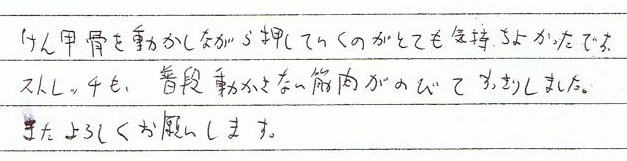 けん甲骨を動かしながら押していくのがとても気持ちよかったです。
ストレッチも、普段動かさない筋肉がのびてすっきりしました。
またよろしくお願いします。